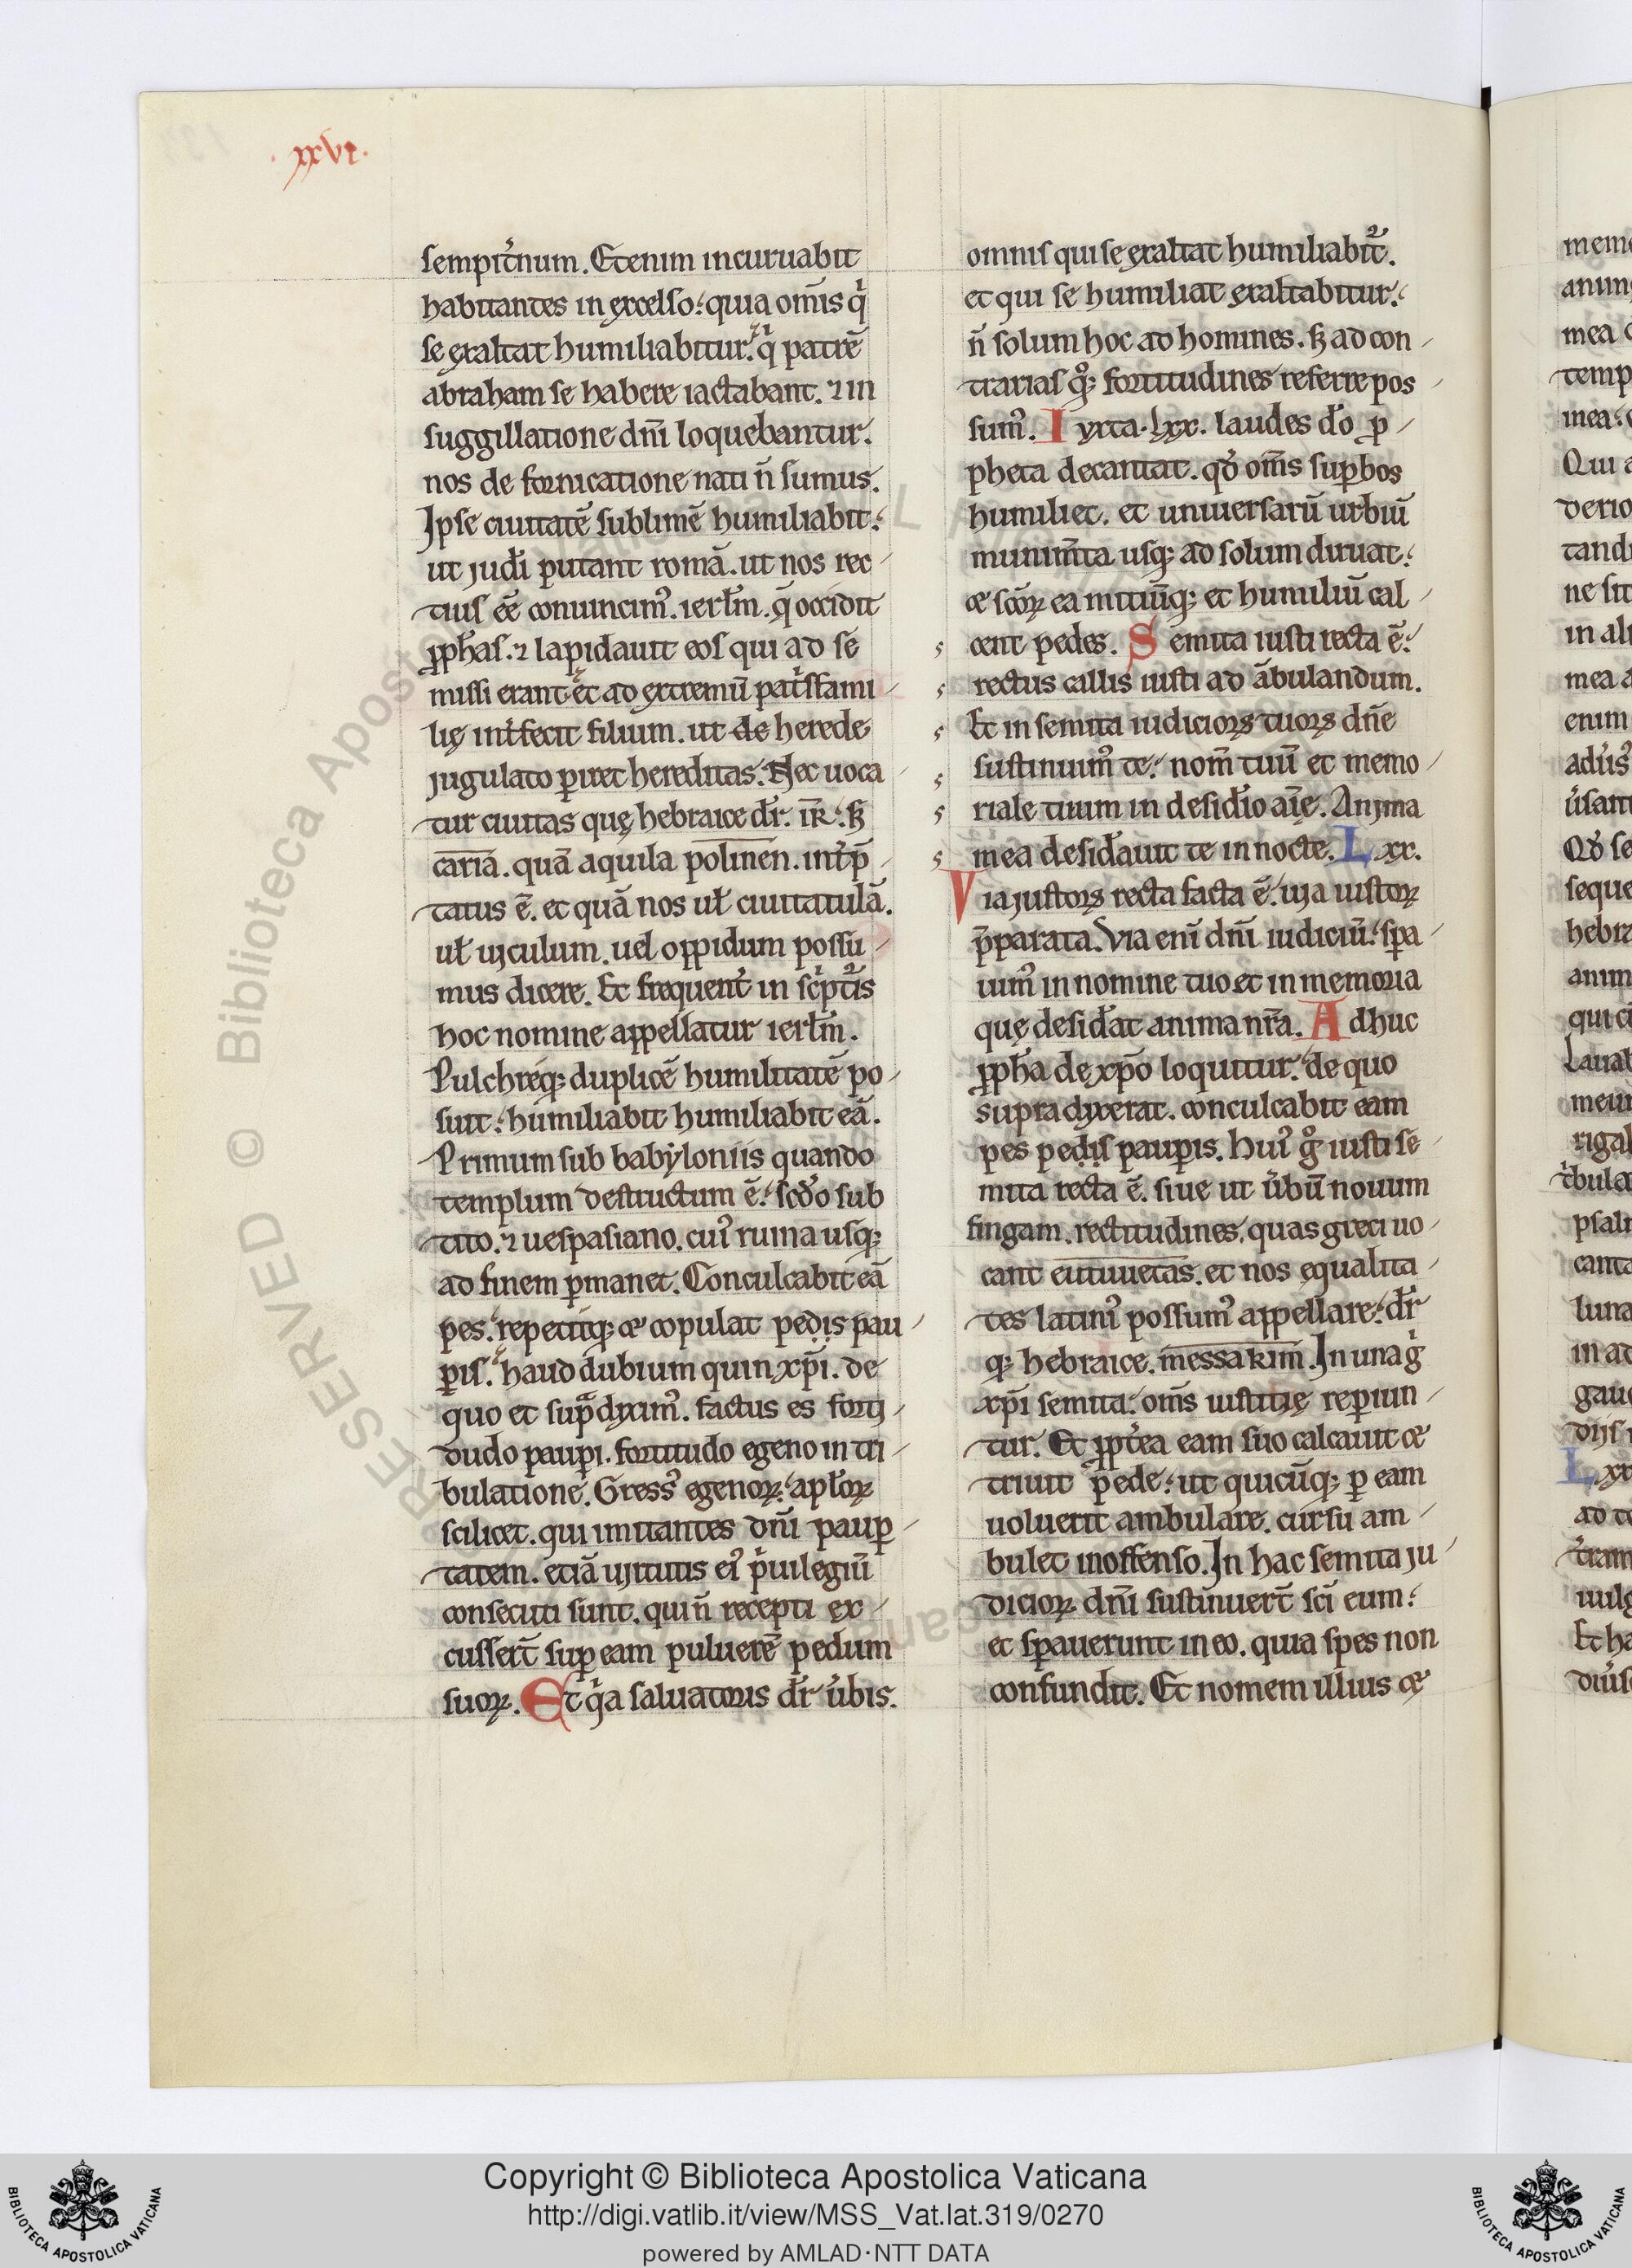 .xxvi.
sempit̾num. Etenim incuruabit
habitantes in excelso: quia om̄is q̍
se exaltat humiliabitur. q̍ patrē
abraham se habere iactabant. ⁊ in
suggillatione dn̄i loquebantur.
nos de fornicatione nati n̄ sumus.
Ipse ciuitatē sublimē humiliabit:
ut judi putant romā. ut nos rec
tius eē conuincim᷒. ierl̄m. q̄ occidit
ꝓph̄as. ⁊ lapidauit eos qui ad se
missi erant. et ad extremū pat̍sfami
lię int̾fecit filium. ut de herede
jugulato ꝑiret hereditas. Nec uoca
tur ciuitas quę hebraice dr̄. ir̄: sꝫ
cariā. quā aquila polinen. int̾p̄
tatus ē. et quā nos ul̄ ciuitatulā.
ul̄ uiculum. uel oppidum possu
mus dicere. Et frequent̾ in sc̍ptur̾is
hoc nomine appellatur ierl̄m.
Pulchreqꝫ duplicē humilitatē po
suit: humiliabit humiliabit eā.
Primum sub babyloniis quando
templum destructum ē: scd̾o sub
tito. ⁊ uespasiano. cui᷒ ruina usqꝫ
ad finem ꝑmanet. Conculcabit eā
pes. repetitqꝫ et copulat pedis pau
ꝑis. haud dubium quin xp̄i. de
quo et sup̄ dixim᷒. factus es forti
dudo pauꝑi. fortitudo egeno in tri
bulatione. Gress᷒ egenoꝝ: apl̄oꝝ
scilicet. qui imitantes dn̄i pauꝑ
tatem. etiā uirtutis ei᷒ p̍uilegiū
consecuti sunt. qui n̄ recepti ex
cusser̄t suꝑ eam puluerē pedum
suoꝝ. Et q̍a saluatoris dr̄ u̾bis.
omnis qui se exaltat humiliabit̾.
et qui se humiliat exaltabitur:
n̄ solum hoc ad homines. sꝫ ad con
trarias qͦꝫ fortitudines referre pos
sum᷒. Iuxta .lxx. laudes d̾o ꝓ
pheta decantat. qd̾ om̄s suꝑbos
humiliet. et uniuersarū urbiū
munim̄ta usqꝫ ad solum diruat:
et sc̄oꝝ ea mitiūqꝫ et humiliū cal
cent pedes. Semita iusti recta ē:
rectus callis iusti ad ābulandum.
Et in semita iudicioꝝ tuoꝝ dn̄e
sustinuim᷒ te: nom̄ tuū et memo
riale tuum in desid̾io aīę. Anima
mea desid̾auit te in nocte. Lxx.
Via justoꝝ recta facta ē. uia iustoꝝ
p̄parata. Via eni dn̄i iudiciū: spa
uim᷒ in nomine tuo et in memoria
quę desid̾at anima nr̄a. Adhuc
ꝓph̄a de xp̄o loquitur. de quo
supra dixerat. conculcabit eam
pes pedis pauꝑis. hui᷒ gͦ iusti se
mita recta ē. siue ut u̾bū nouum
fingam. rectitudines. quas greci uo
cant eutiuetas. et nos ęqualita
tes latini᷒ possum᷒ appellare: dr̄
qꝫ hebraice. messakim. In una g̍
xp̄i semita: om̄s iustitię reꝑiun
tur. Et ꝓpt̾ea eam suo calcauit et
triuit pede: ut quicūqꝫ ꝑ eam
uoluerit ambulare. cursu am
bulet inoffenso. In hac semita ju
dicioꝝ dn̄i sustinuer̄t sc̄i eum:
et sꝑauerunt in eo. quia spes non
confundit. Et nomen illius et
Copyright © Biblioteca Apostolica Vaticana
http://digi.vatlib.it/view/MSS_Vat.lat.319/0270
powered by AMLAD·NTT DATA